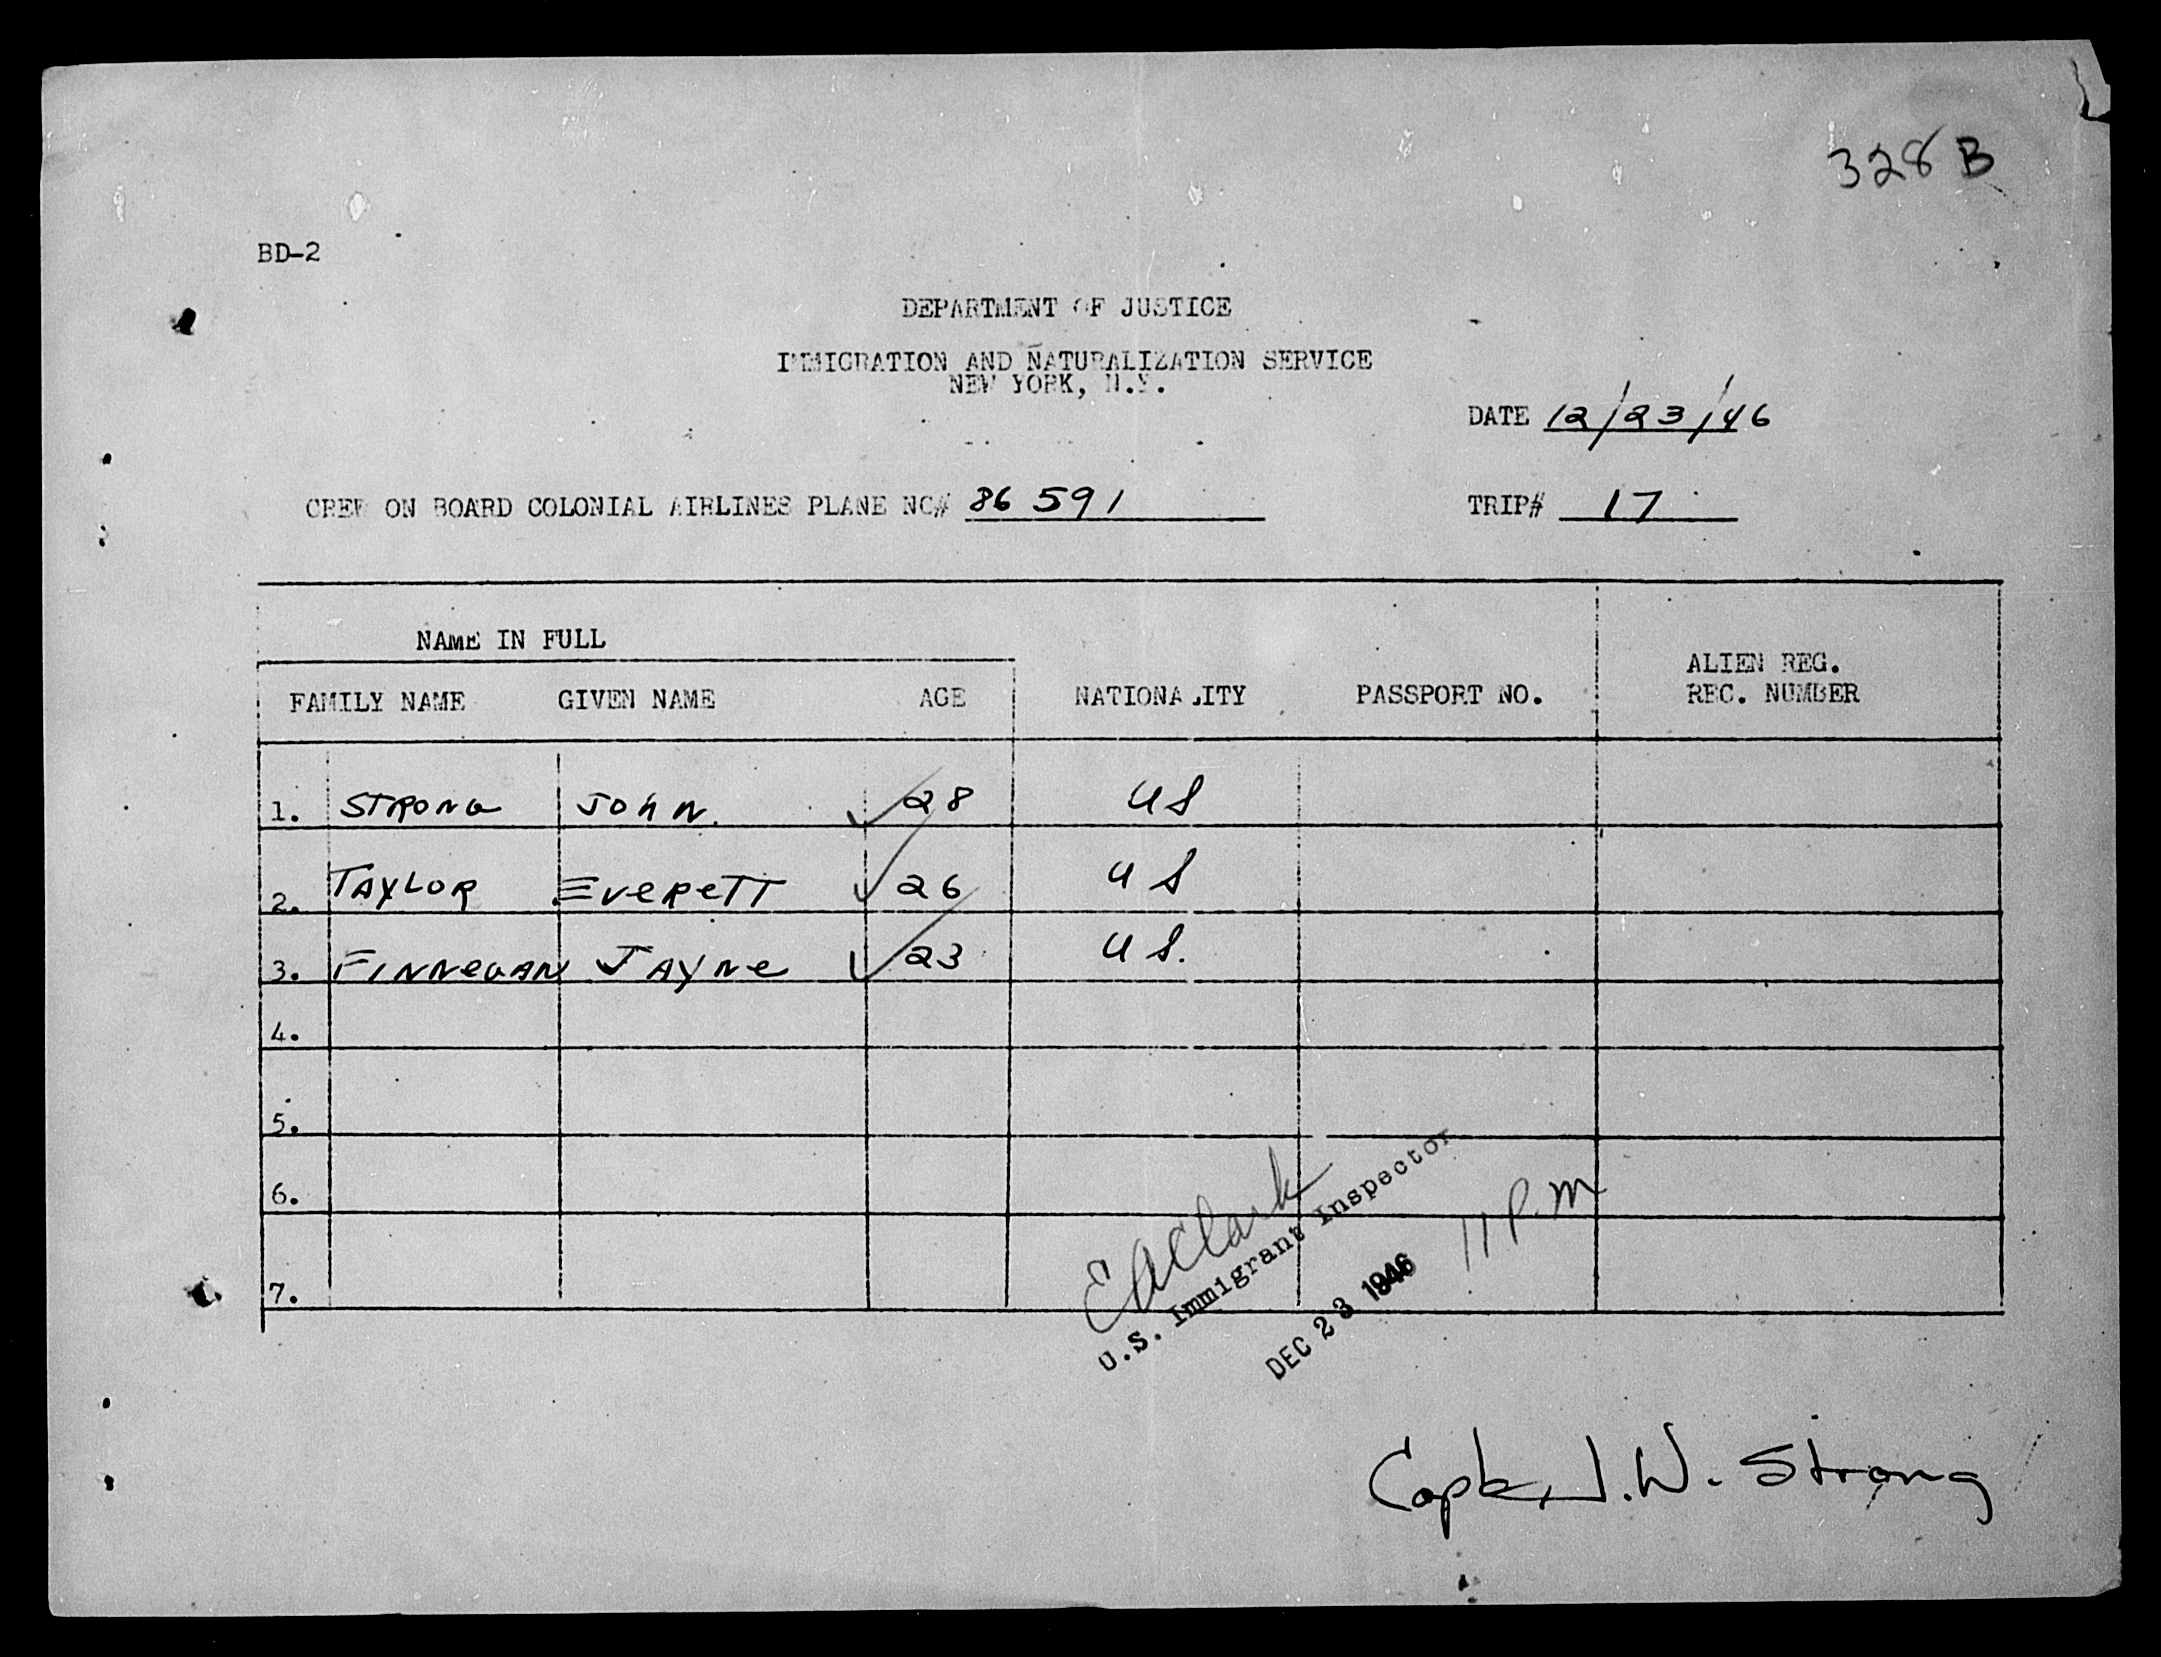 328 B
BD-2
DEPARTMENT OF JUSTICE
IMMIGRATION AND NATURALIZATION SERVICE
NEW YORK, N.Y.
DATE 12/23/46
CREW ON BOARD COLONIAL AIRLINES PLANE NC# 86591 TRIP# 17
NAME IN FULL
ALIEN REG.
FAMILY NAME GIVEN NAME AGE NATIONALITY PASSPORT NO. REC. NUMBER
1. STRONG JOHN. ✓ 28 US
2. TAYLOR EVERETT ✓ 26 US
3. FINNEGAN JAYNE ✓ 23 US.
4.
5.
6.
7.
EAClark
U.S. Immigrant Inspector
DEC 23 1946 11 P.M
Capt. J.W. Strong